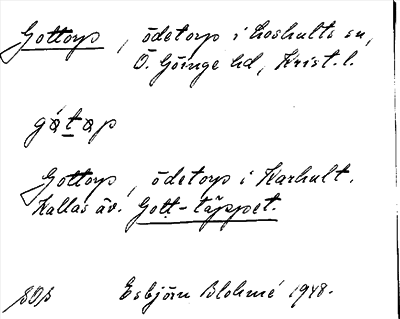 Gottorp, ödetorp i Loshults sn,
Ö. Göinge hd, Krist. l.
gotop
Gottorp, ödetorp i Karhult.
Kallas äv. Gott-täppet.
Esbjörn Blohmé 1948.